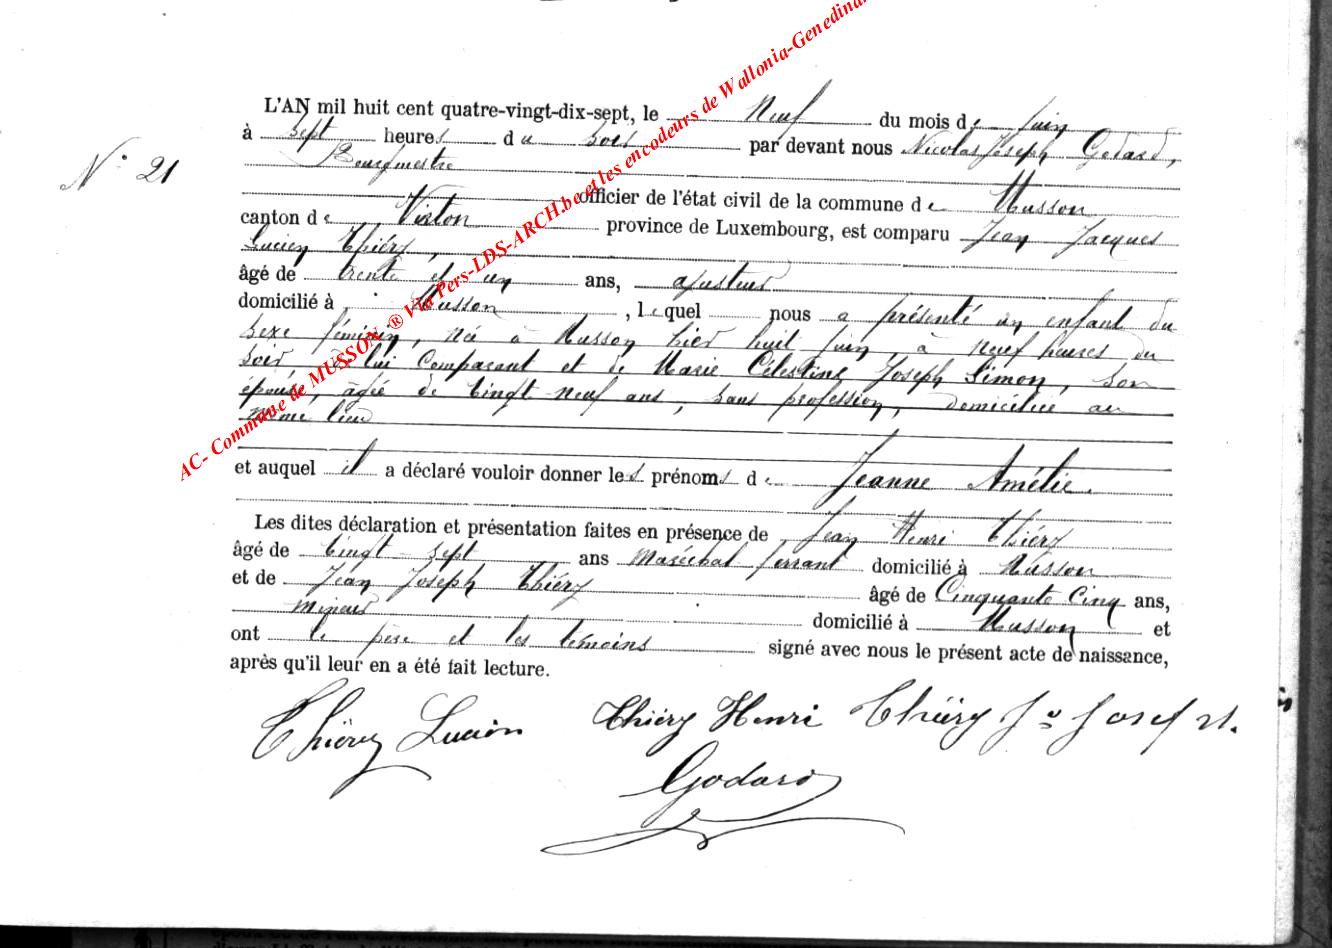 AC- Commune de MUSSON ® Via Pers-LDS-ARCH.be et les encodeurs de Wallonia-Genedinar
N° 21
L'AN mil huit cent quatre-vingt-dix-sept, le Neuf du mois de Juin
à sept heures du soir par devant nous Nicolas Joseph Godard,
Bourgmestre
officier de l'état civil de la commune de Musson
canton de Virton province de Luxembourg, est comparu Jean Jacques
Lucien Thiéry,
âgé de trente et un ans, ajusteur
domicilié à Musson, lequel nous a présenté un enfant du
sexe féminin, née à Musson hier huit juin, à neuf heures du
soir, de lui Comparant et de Marie Célestine Joseph Simon, son
épouse, âgée de vingt-neuf ans, sans profession, domiciliée au
même lieu
et auquel il a déclaré vouloir donner les prénoms de Jeanne Amélie.
Les dites déclaration et présentation faites en présence de Jean Henri Thiéry
âgé de vingt-sept ans Maréchal ferrant domicilié à Musson
et de Jean Joseph Thiéry âgé de Cinquante Cinq ans,
mineur domicilié à Musson et
ont le père et les témoins signé avec nous le présent acte de naissance,
après qu'il leur en a été fait lecture.
Thiéry Lucien Thiéry Henri Thiéry Jn Josef
Godard